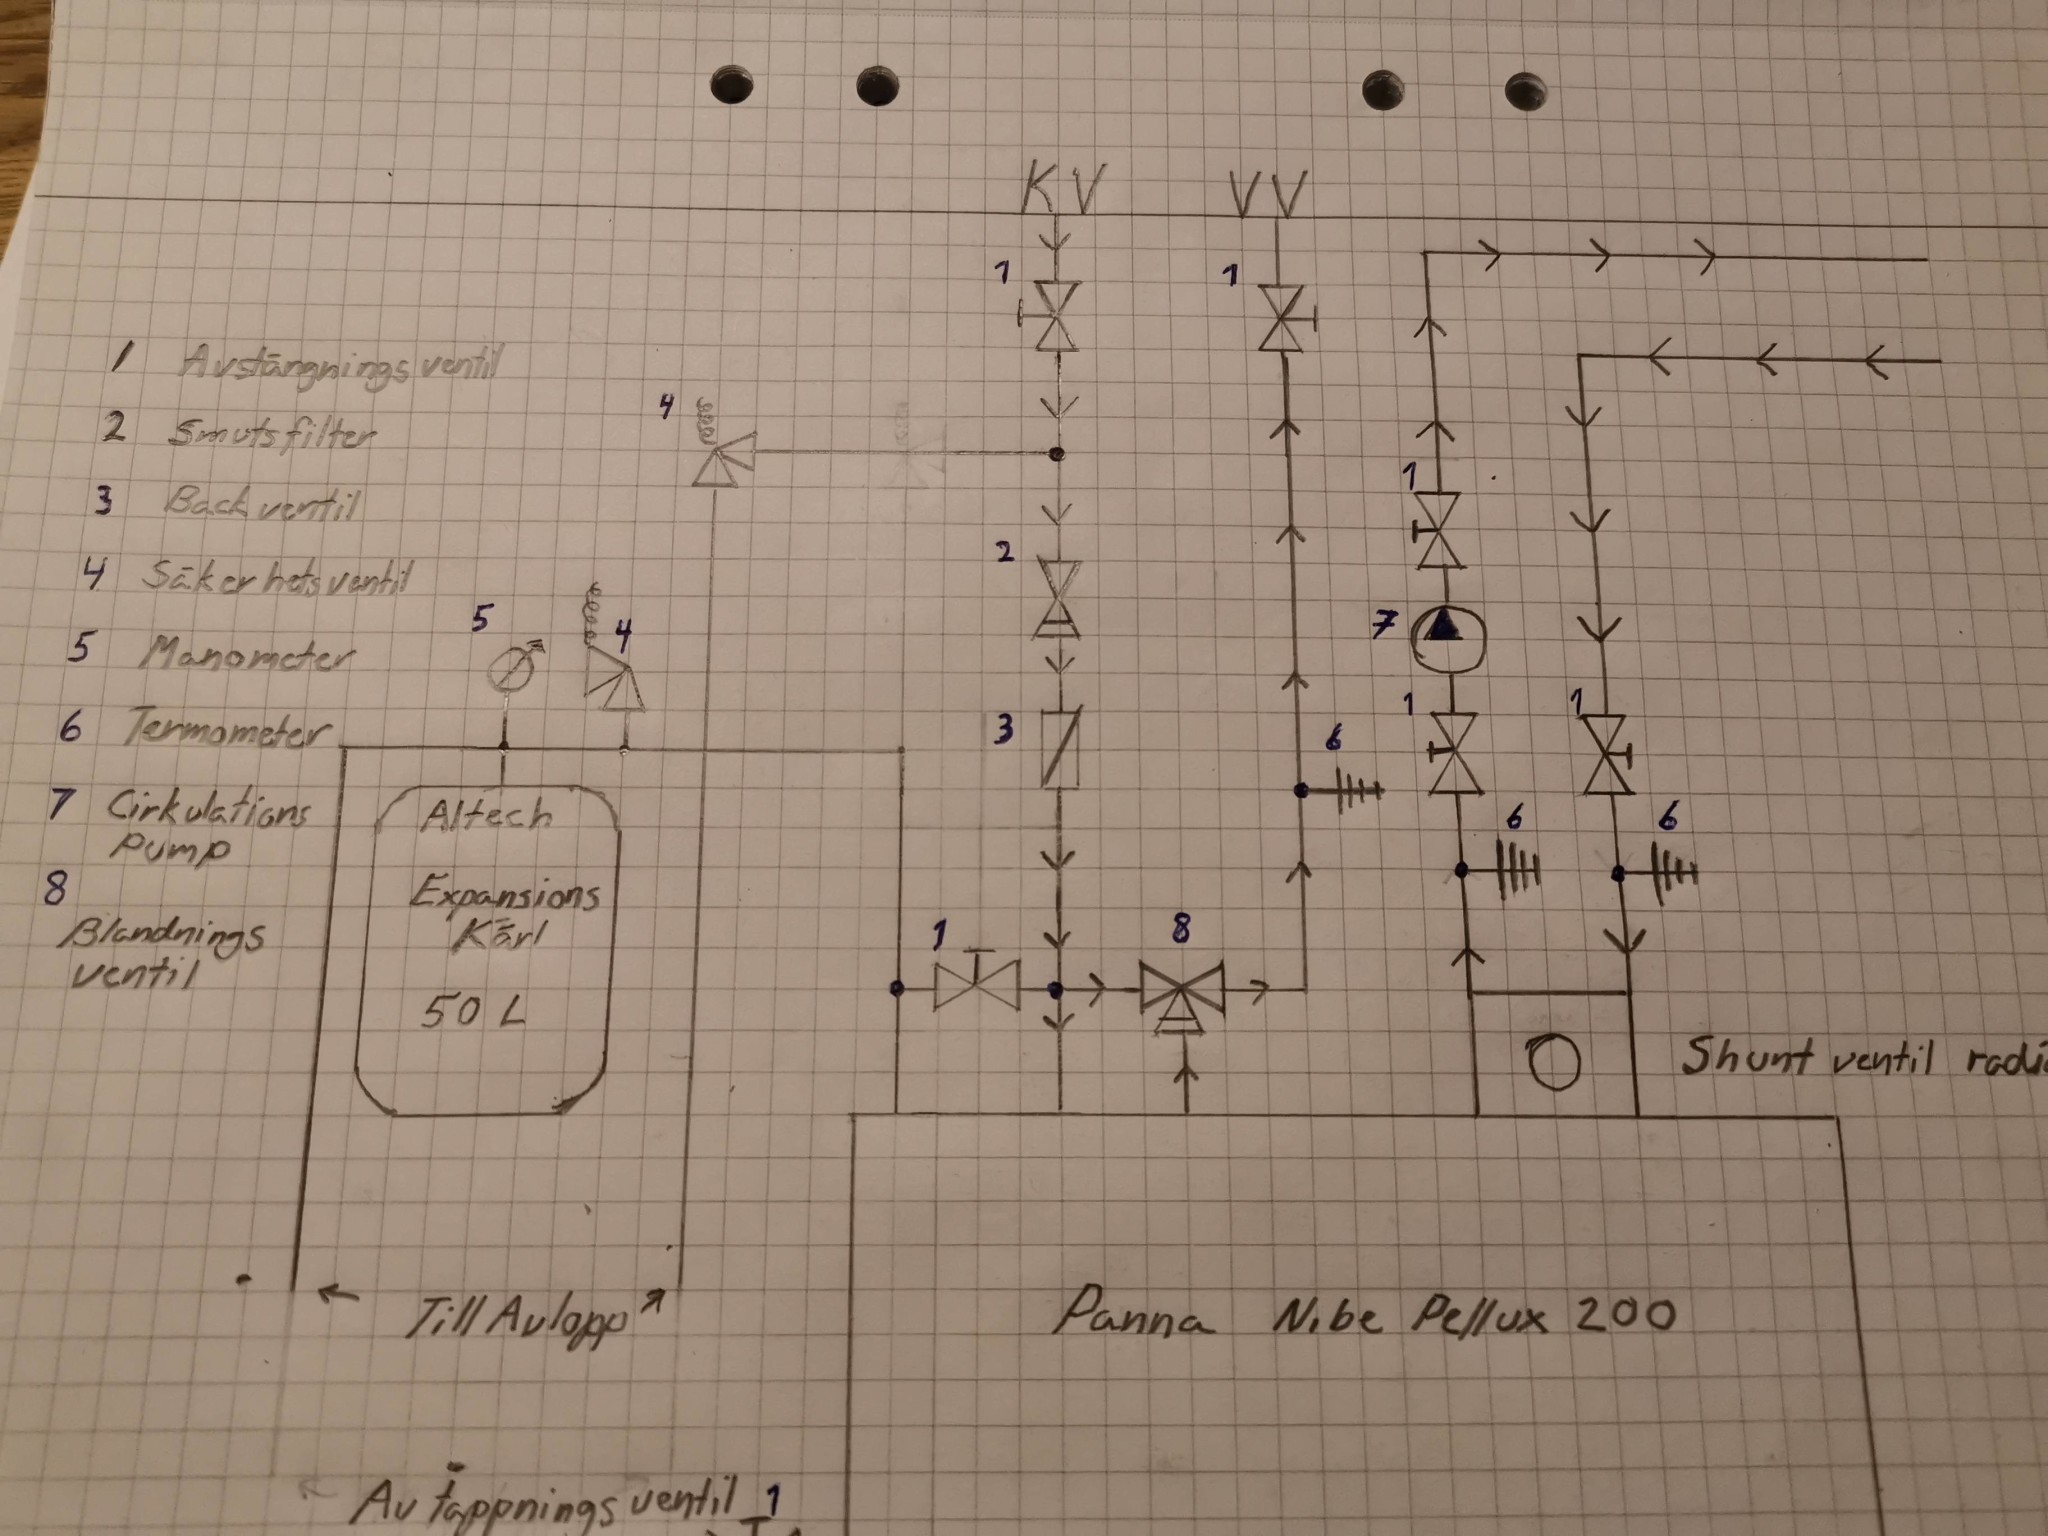 KV VV
1 1
1 Avstängnings ventil
4
2 Smutsfilter
1
2
3 Back ventil
4 Säkerhetsventil
5 4
7
5 Manometer
3 1 1
6 Termometer
6
7 Cirkulations
Pump
6 6
Altech
8
Blandnings
ventil
Expansions
Kärl
50 L
1 8
Shunt ventil
Till Avlopp
Panna Nibe Pellux 200
Avtappnings ventil 1